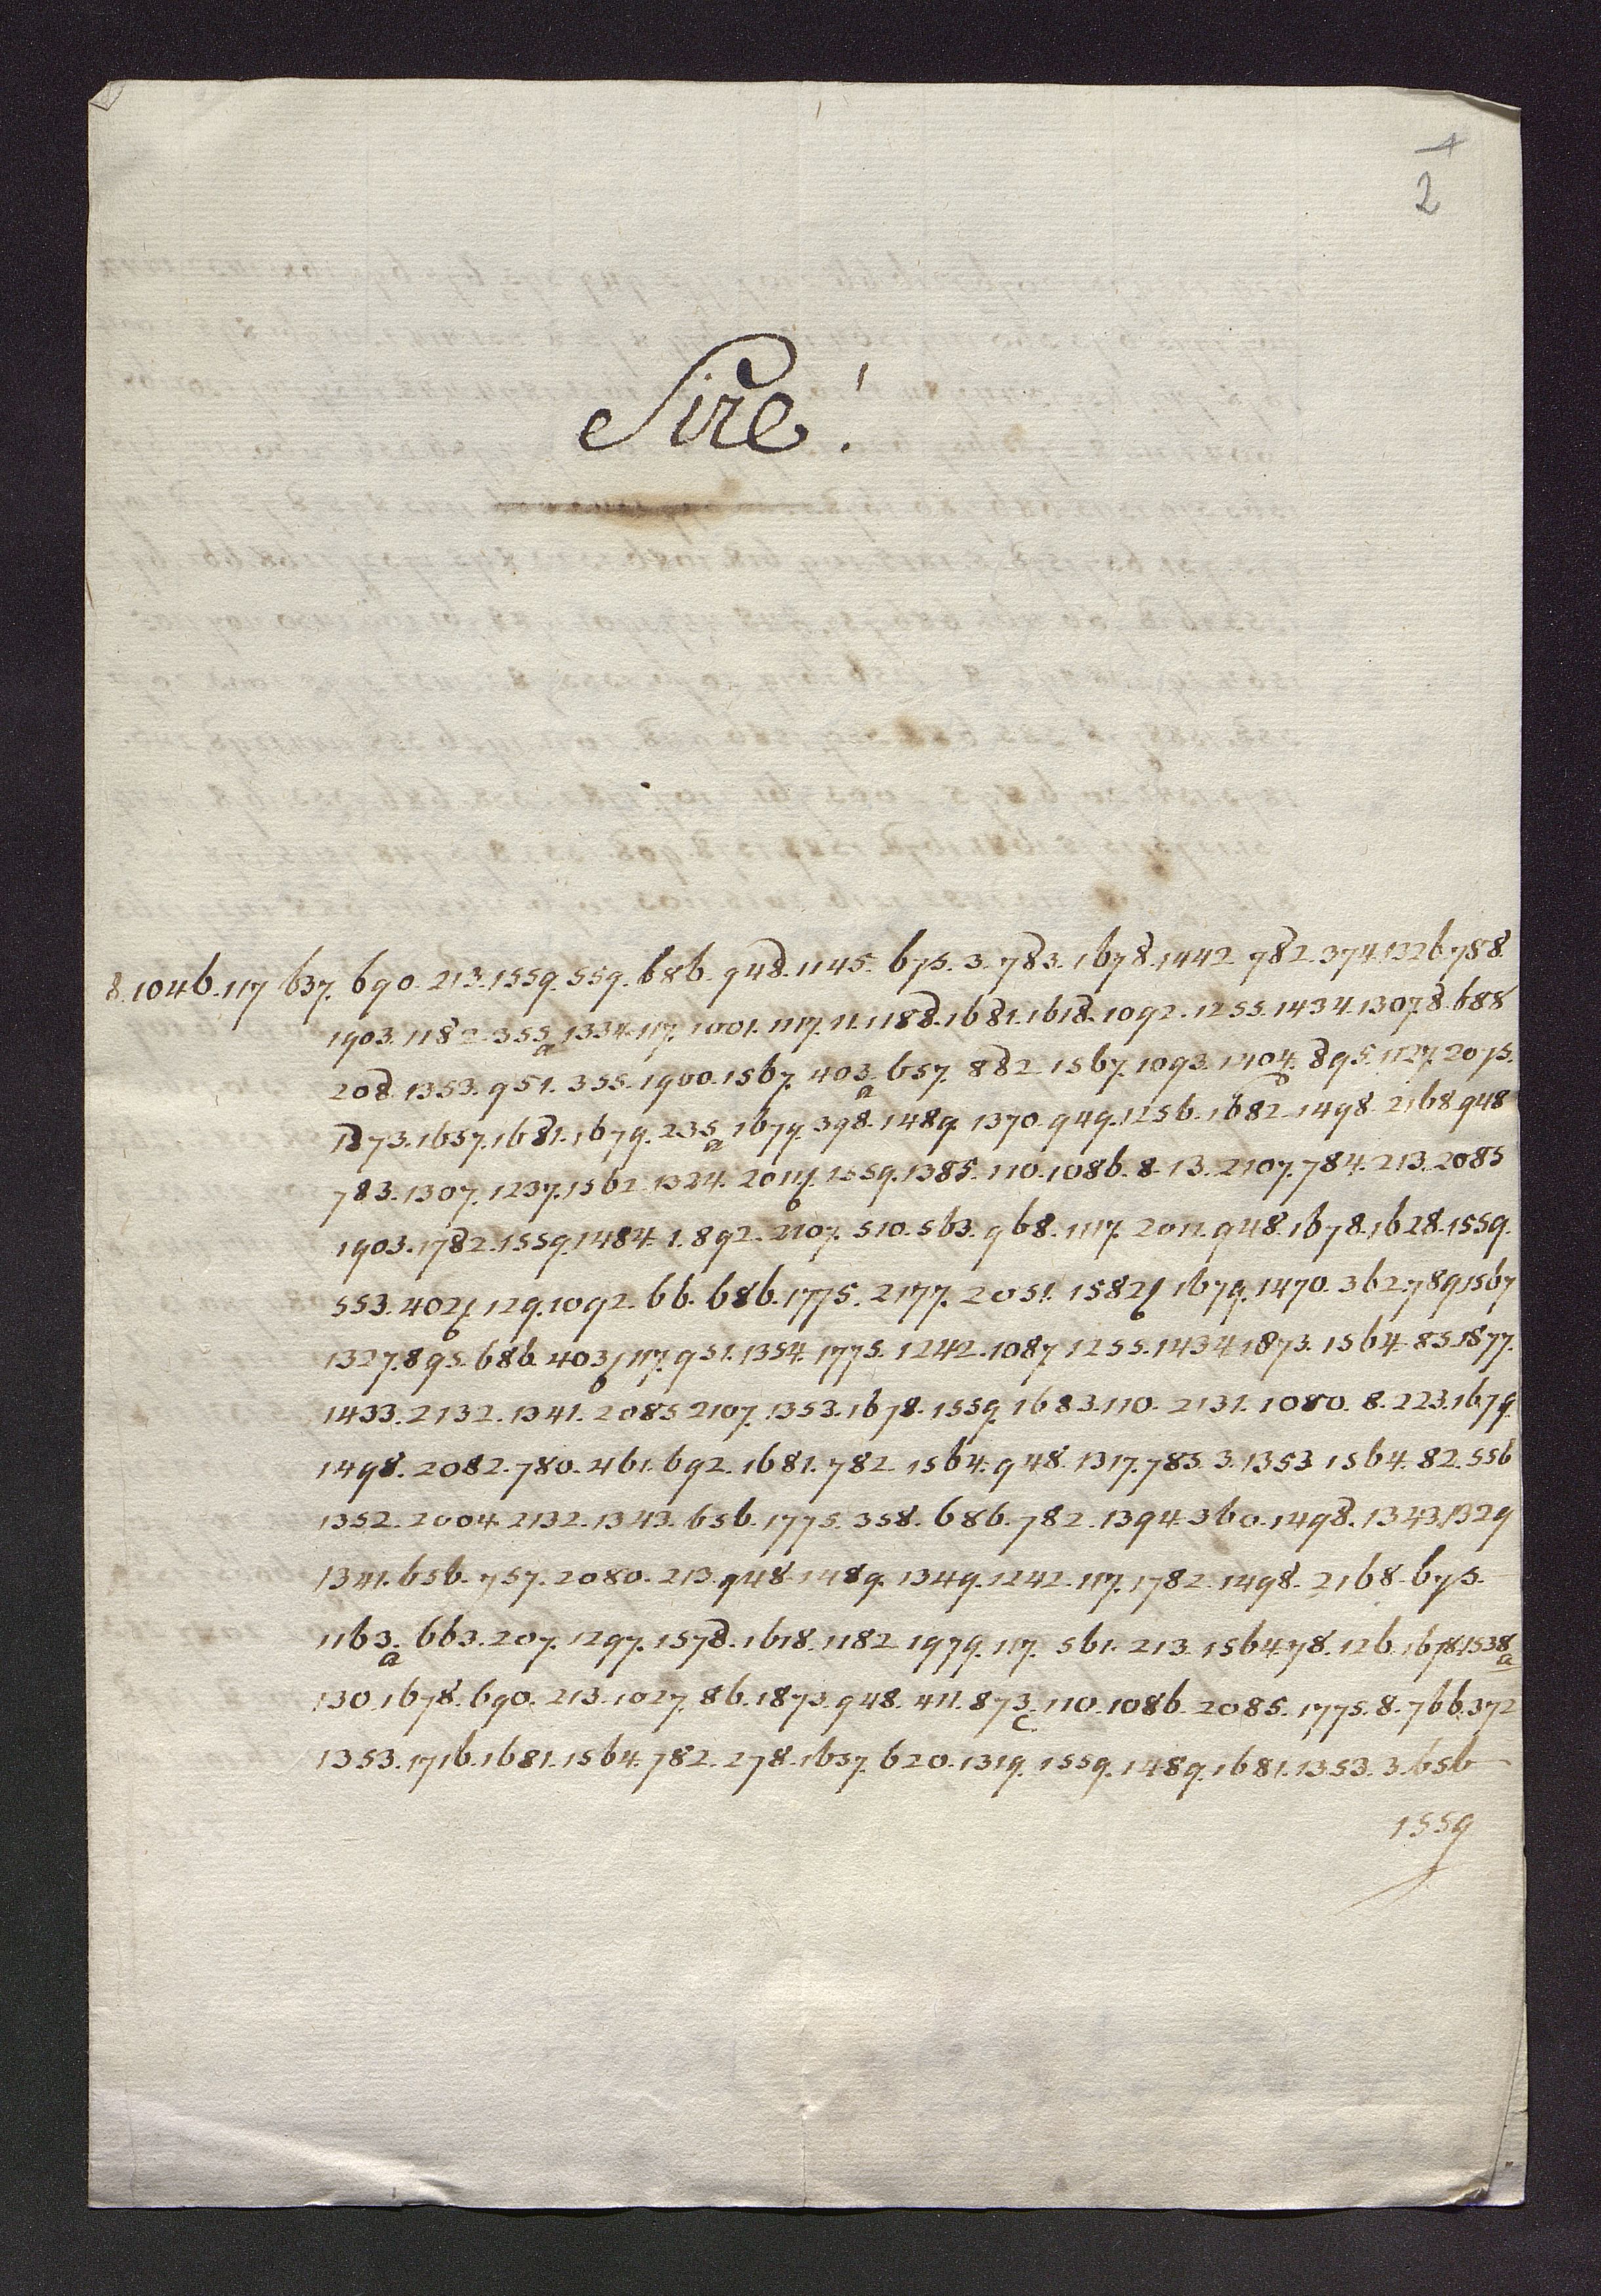 2
Sire!
8. 1046. 117 637. 690. 213. 1559. 559. 686. 948. 1145. 675. 3. 783. 1678. 1442. 782. 374. 1326. 788.
1903. 1182. 355a 1334. 117. 1001. 1117. 11. 1188. 1681. 1618. 1092. 1255. 1434. 1307. 8. 688
208. 1353. 951. 355. 1900. 1567. 403a. 657. 882 1567. 1093. 1404. 895. 1127. 2075.
1873. 1657. 1681. 1679. 235a 1679. 398. 1489. 1370. 949. 1256. 1682. 1498. 2168. 948
783. 1307. 1237. 1562. 1324. 2011b. 1559. 1385. 110. 1086. 8. 13. 2107. 784. 213. 2085
1903. 1782. 1559. 1484. 1. 892. 2107. 510. 563. 968. 117. 2011. 948. 1678. 1628. 1559.
553. 402b. 129. 1092. 66. 686. 1775. 2177. 2051. 1582b 1679. 1470. 362. 789. 1567
1327. 895. 686. 403b 117. 951. 1354. 1775. 1242. 1087 1255. 1434 1873. 1564. 85. 1877.
1433. 2132. 1341. 2085 2107. 1353. 1678. 1559. 1683. 110. 2131. 1080. 8. 223. 1679.
1498. 2082. 780. 461. 692. 1681. 782. 1564. 948. 1317. 783. 3. 1353 1564. 82. 556
1352. 2004. 2132. 1343. 656. 1775. 358. 686. 782. 1394. 360. 1498. 1343. 1329
1341. 656. 757. 2080. 213. 948. 1489. 1349. 1242. 117. 1782. 1498. 2168. 675.
1163a. 663. 207. 1297. 1578. 1618. 1182. 1979. 117. 561. 213. 1564. 78. 126. 1678. 1538a
130. 1678. 690. 213. 1027. 86. 1873. 948. 411. 873c. 110. 1086. 2085. 1775. 8. 766. 372
1353. 1716. 1681. 1564. 782. 278. 1657. 620. 1319. 1559. 1489. 1681. 1353. 3. 656
1559